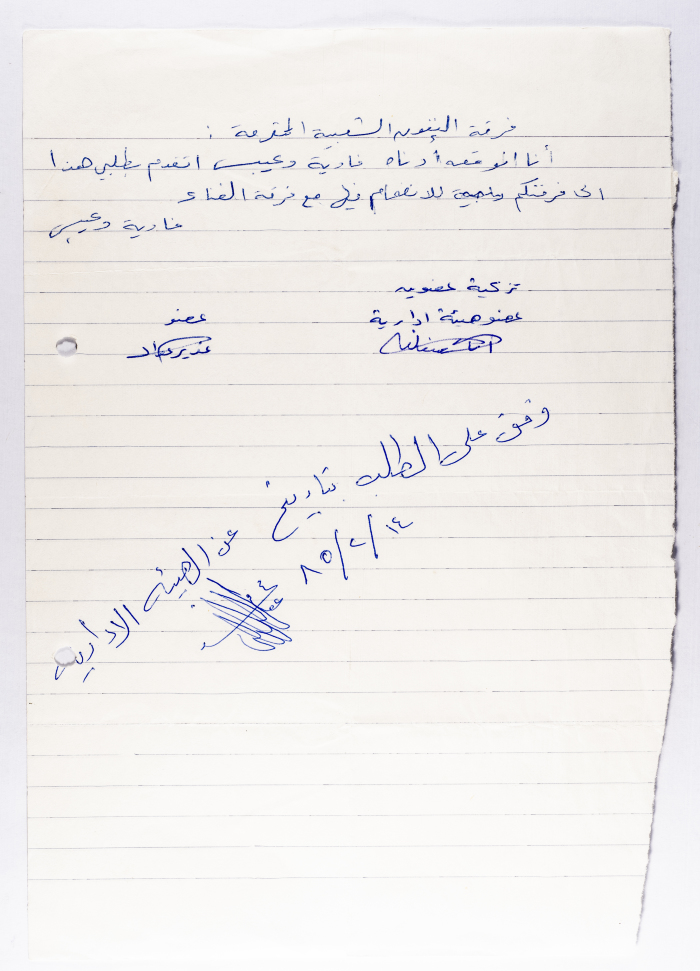 فرقة الفنون الشعبية المحترمة :
أنا الموقعه أدناه فادية دعيبس اتقدم بطلبي هذا
الى فرقتكم للانضمام فيها مع فرقة الغناء
فادية دعيبس
تزكية عضوين
عضو هيئة ادارية عضو
وفق على الطلب بتاريخ
١٤/٢/٨٥
عن الهيئة الادارية